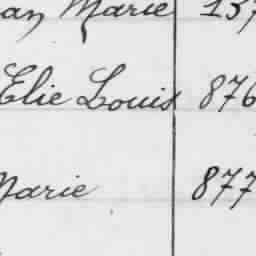 an Marie 137
Elie Louis 876
Marie 877